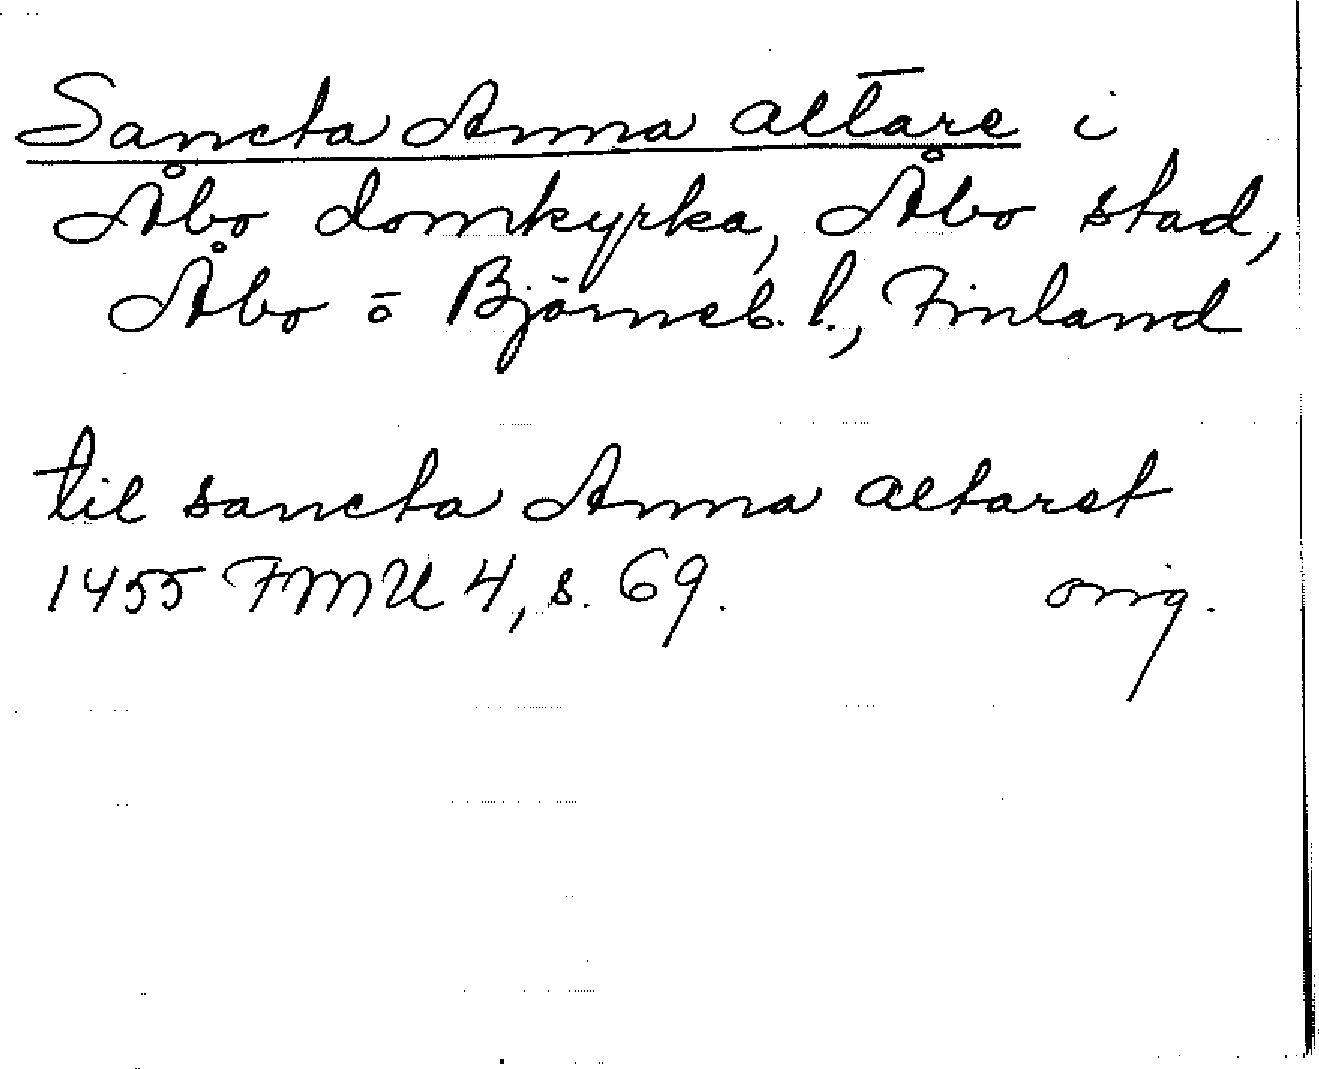 Sancta Anna altare i
Åbo domkyrka, Åbo stad,
Åbo o Björneb. l., Finland
til sancta Anna altaret
1455 FMU 4, s. 69. orig.